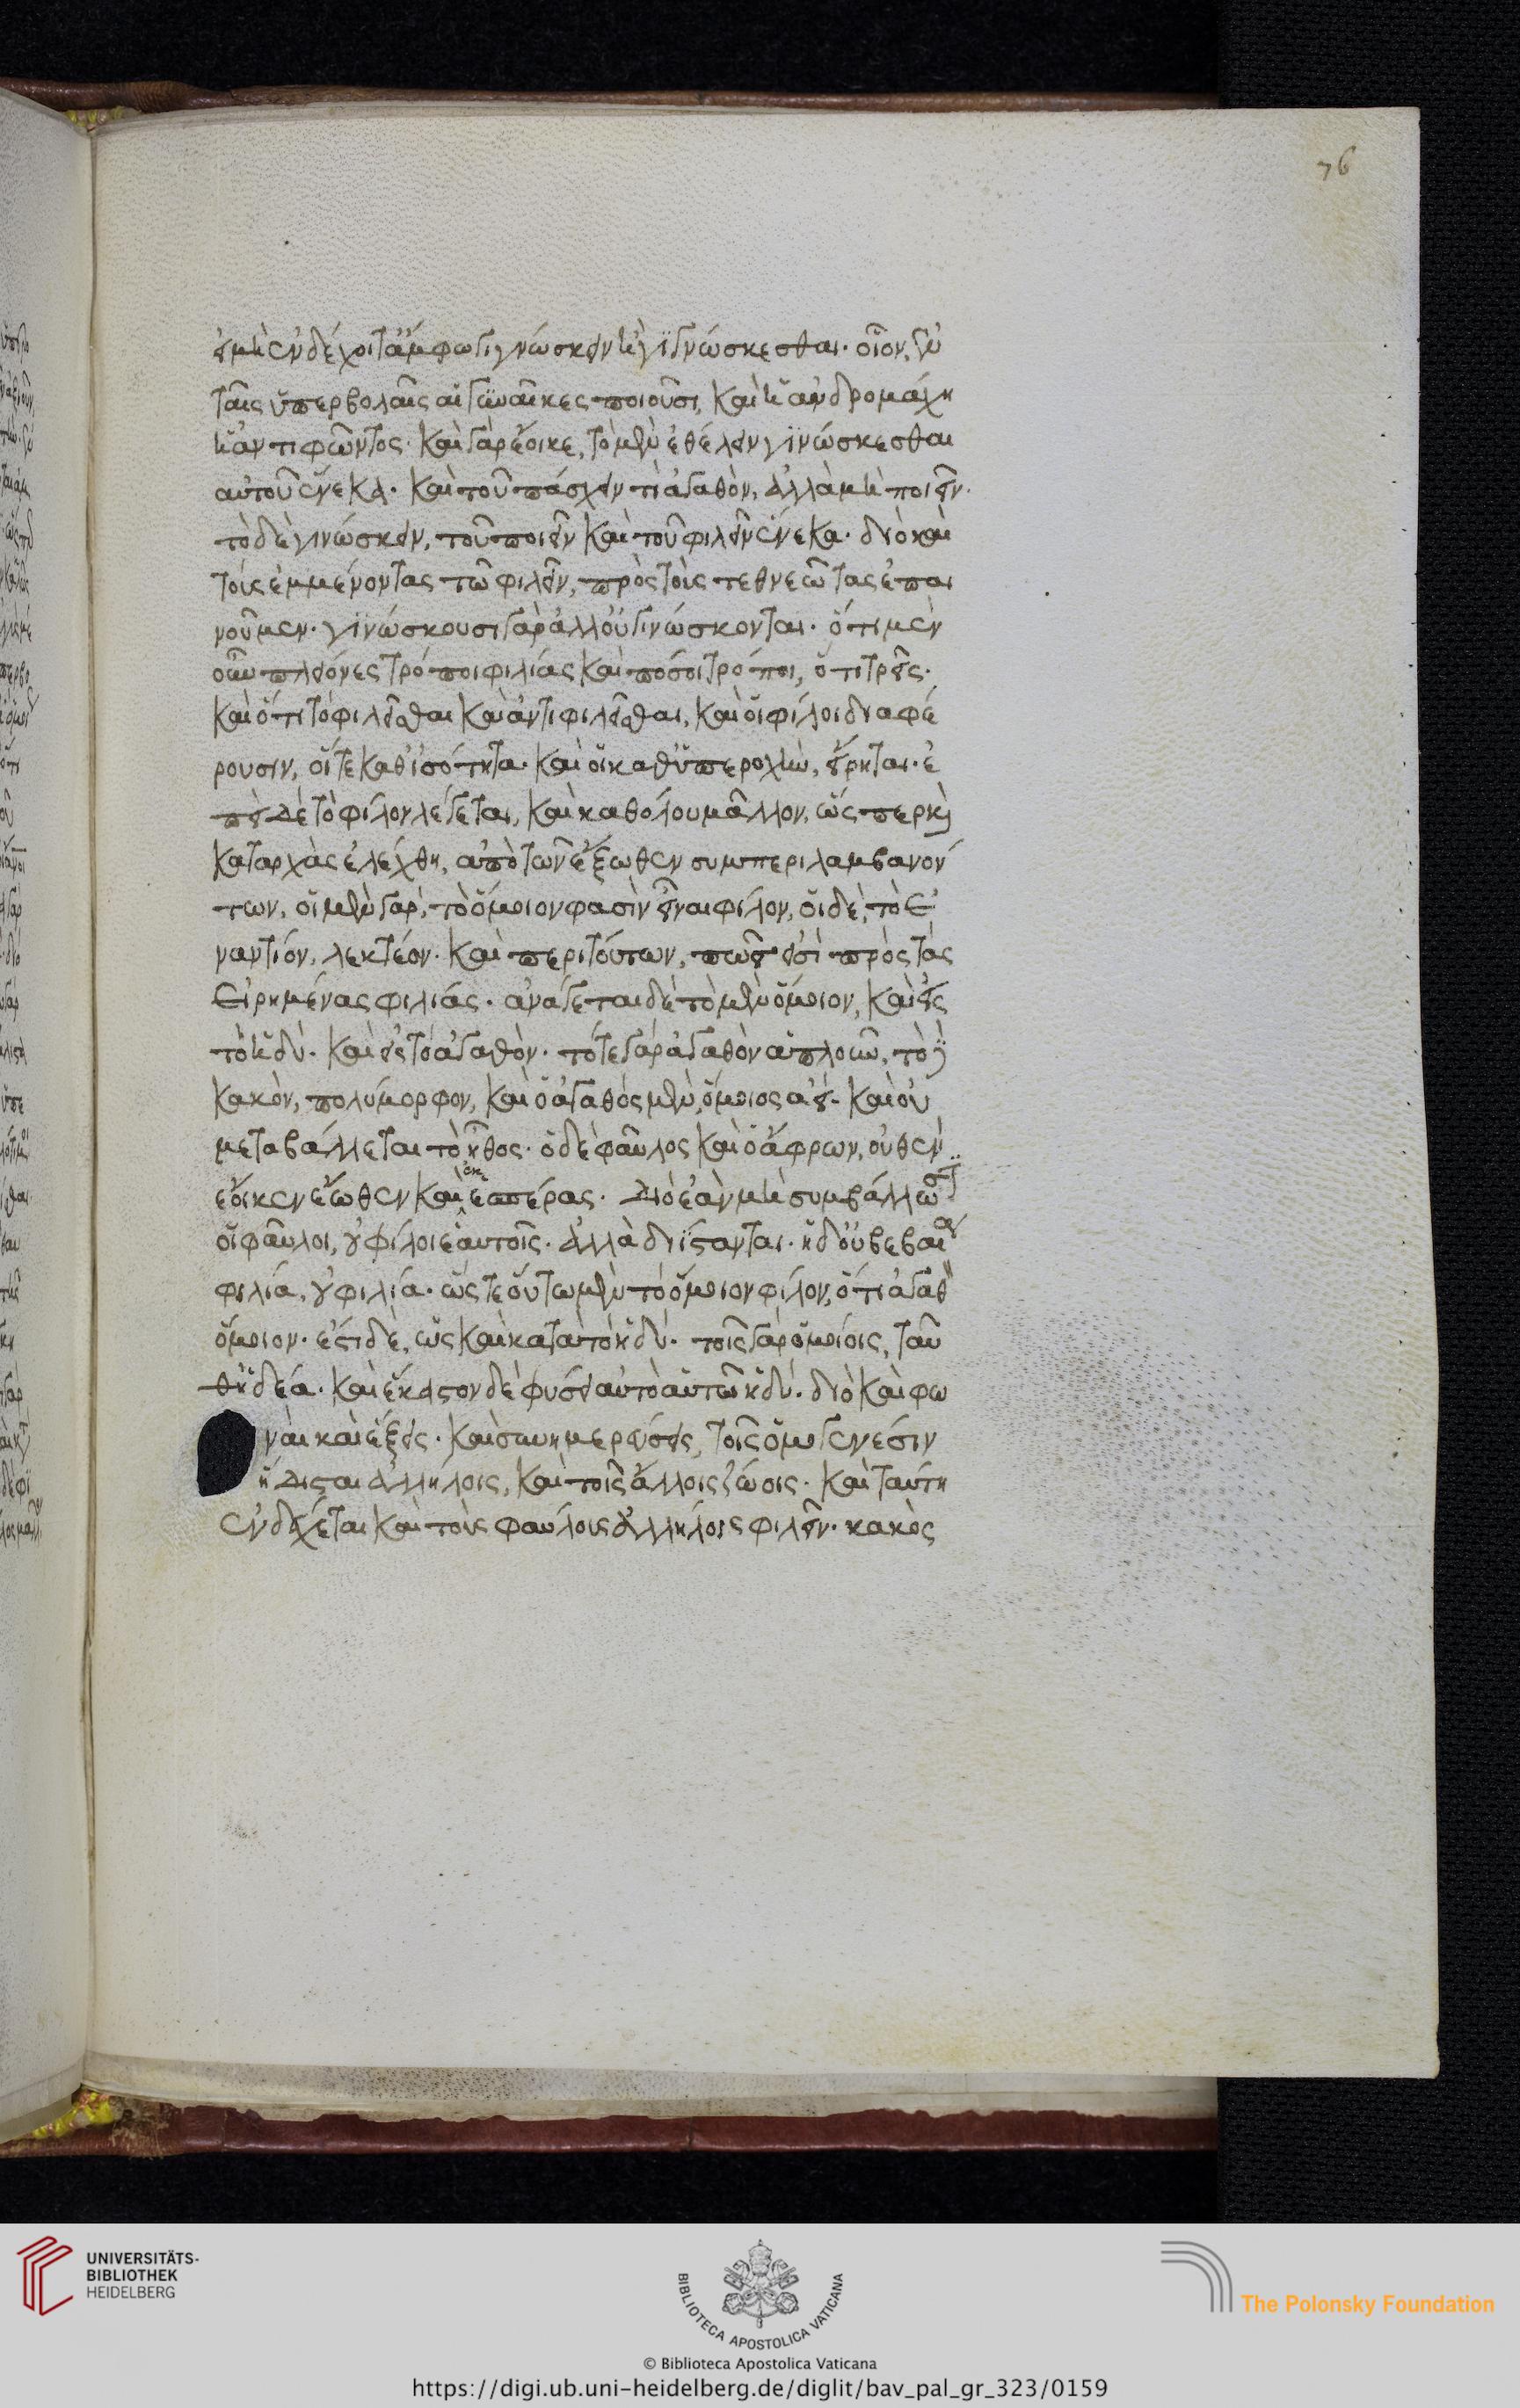 76
εἰ μὴ ἐνδέχοιτ' ἄμφω γιγνώσκειν ἢ γινώσκεσθαι. οἷον ἐν
ταῖς ὑπερβολαῖς αἱ γυναῖκες ποιοῦσι, καὶ ἡ ἀνδρομάχη
ἡ ἀντιφῶντος. καὶ γὰρ ἔοικε, τὸ μὲν ἐθέλειν γινώσκεσθαι
αὐτοῦ ἕνεκα. καὶ τοῦ πάσχειν τι ἀγαθὸν, ἀλλὰ μὴ ποιεῖν.
τὸ δὲ γινώσκειν, τοῦ ποιεῖν καὶ τοῦ φιλεῖν ἕνεκα. διὸ καὶ
τοὶς ἐμμένοντας τῶ φιλεῖν, πρὸς τοὶς τεθνεῶτας ἐπαι
νοῦμεν. γινώσκουσι γὰρ ἀλλ' οὐ γινώσκονται. ὅτι μὲν
οὖν πλείονες τρόποι φιλίας καὶ πόσοι τρόποι, ὅτι τρεῖς.
καὶ ὅτι τὸ φιλεῖσθαι καὶ ἀντιφιλεῖσθαι, καὶ οἱ φίλοι διαφέ
ρουσιν, οἵ τε κατ' ἰσότητα. καὶ οἱ καθ' ὑπεροχὴν, εἴρηται. ἐ
πεὶ δὲ τὸ φίλον λέγεται, καὶ καθόλου μᾶλλον, ὥς περ καὶ
κατ' αρχὰς ἐλέχθη, ἀπὸ τῶν ἔξωθεν συμπεριλαμβανόν
των, οἱ μὲν γαρ, τὸ ὅμοιον φασὶν εἶναι φίλον, οἱ δὲ, τὸ ἐ
ναντίον, λεκτέον. καὶ περὶ τούτων, πῶς εἰσὶ πρὸς τὰς
εἰρημένας φιλίας. ἀνάγεται δὲ τὸ μὲν ὅμοιον, καὶ εἰς
τὸ ἡδὺ. καὶ εἰς τὸ ἀγαθὸν. τό τε γὰρ ἀγαθὸν ἁπλοῦν, τὸ δὲ
κακὸν, πολύμορφον, καὶ ὁ ἀγαθός μὲν, ὅμοιος αεί. καὶ οὐ
μεταβάλλεται τὸ ἦθος. ὁ δὲ φαῦλος καὶ ὁ ἄφρων, οὐθὲν
ἔοικεν ἕωθεν καὶ ἑσπέρας. διὸ ἐὰν μὴ συμβάλλωσιν
οἱ φαῦλοι, οὐ φίλοι ἑαυτοῖς. ἀλλὰ διΐστανται. ἡ δ' οὐ βεβαία
φιλία, οὐ φιλία. ὥς τε οὕτω μὲν τὸ ὅμοιον φίλον, ὅτι ἀγαθὸν
ὅμοιον. ἔστι δὲ, ὡς καὶ κατὰ τὸ ἡδὺ. τοῖς γὰρ ὁμοίοις, ταῦ
θ' ἡδέα. καὶ ἕκαστον δὲ φύσει αὐτὸ αὑτῶ ἡδύ. διὸ καὶ φω
ναὶ καὶ ἕξεις. καὶ συνημερεύσεις, τοῖς ὁμογενέσιν
ἥδισται ἀλλήλοις, καὶ τοῖς ἄλλοις ζώοις. καὶ ταύτη
ἐνδέχεται καὶ τοὺς φαύλους ἀλλήλους φιλεῖν. κακὸς
UNIVERSITÄTS-
BIBLIOTHEK
HEIDELBERG
BIBLIOTECA APOSTOLICA VATICANA
The Polonsky Foundation
© Biblioteca Apostolica Vaticana
https://digi.ub.uni-heidelberg.de/diglit/bav_pal_gr_323/0159